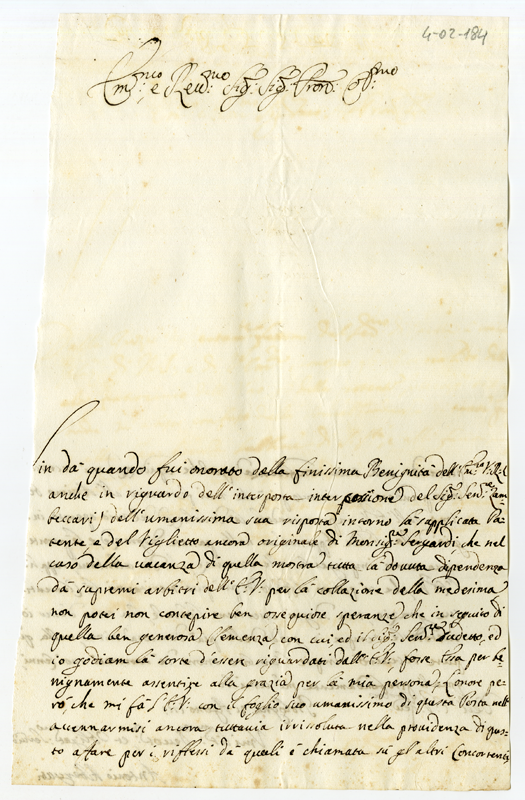 4-02-184
Em.mo e Rev.mo Sig.r Sig.r Pron. Col.mo
Fin da quando fui onorato della finissima Benignità dell'Em.za V.a
anche in riguardo dell'interposta intercessione del Sig.r Sen.re Zam-
beccari) dell'umanissima sua risposta intorno la supplicata Pa-
tente e del Viglietto ancora originale di Monsig.r Segardi, che nel
caso della vacanza di quella mostra tutta la dovuta dipendenza
da supremi arbitri dell'E.V. per la collazione della medesima
non potei non concepire ben ossequiose speranze, che in seguito di
quella ben generosa Clemenza con cui ed il Sig.r Sen.re sudetto, ed
io godiam la sorte d'esser riguardati dall'E.V. fosse Essa per be-
nignamente assentire alla grazia per la mia persona. L'onore pe-
rò, che mi fa l'E.V. con il foglio suo umanissimo di questa Posta nell'
accennarmisi ancora tuttavia irrisoluta nella providenza di ques-
to affare per i riflessi da quali è chiamata su gl'altri Concorrenti,